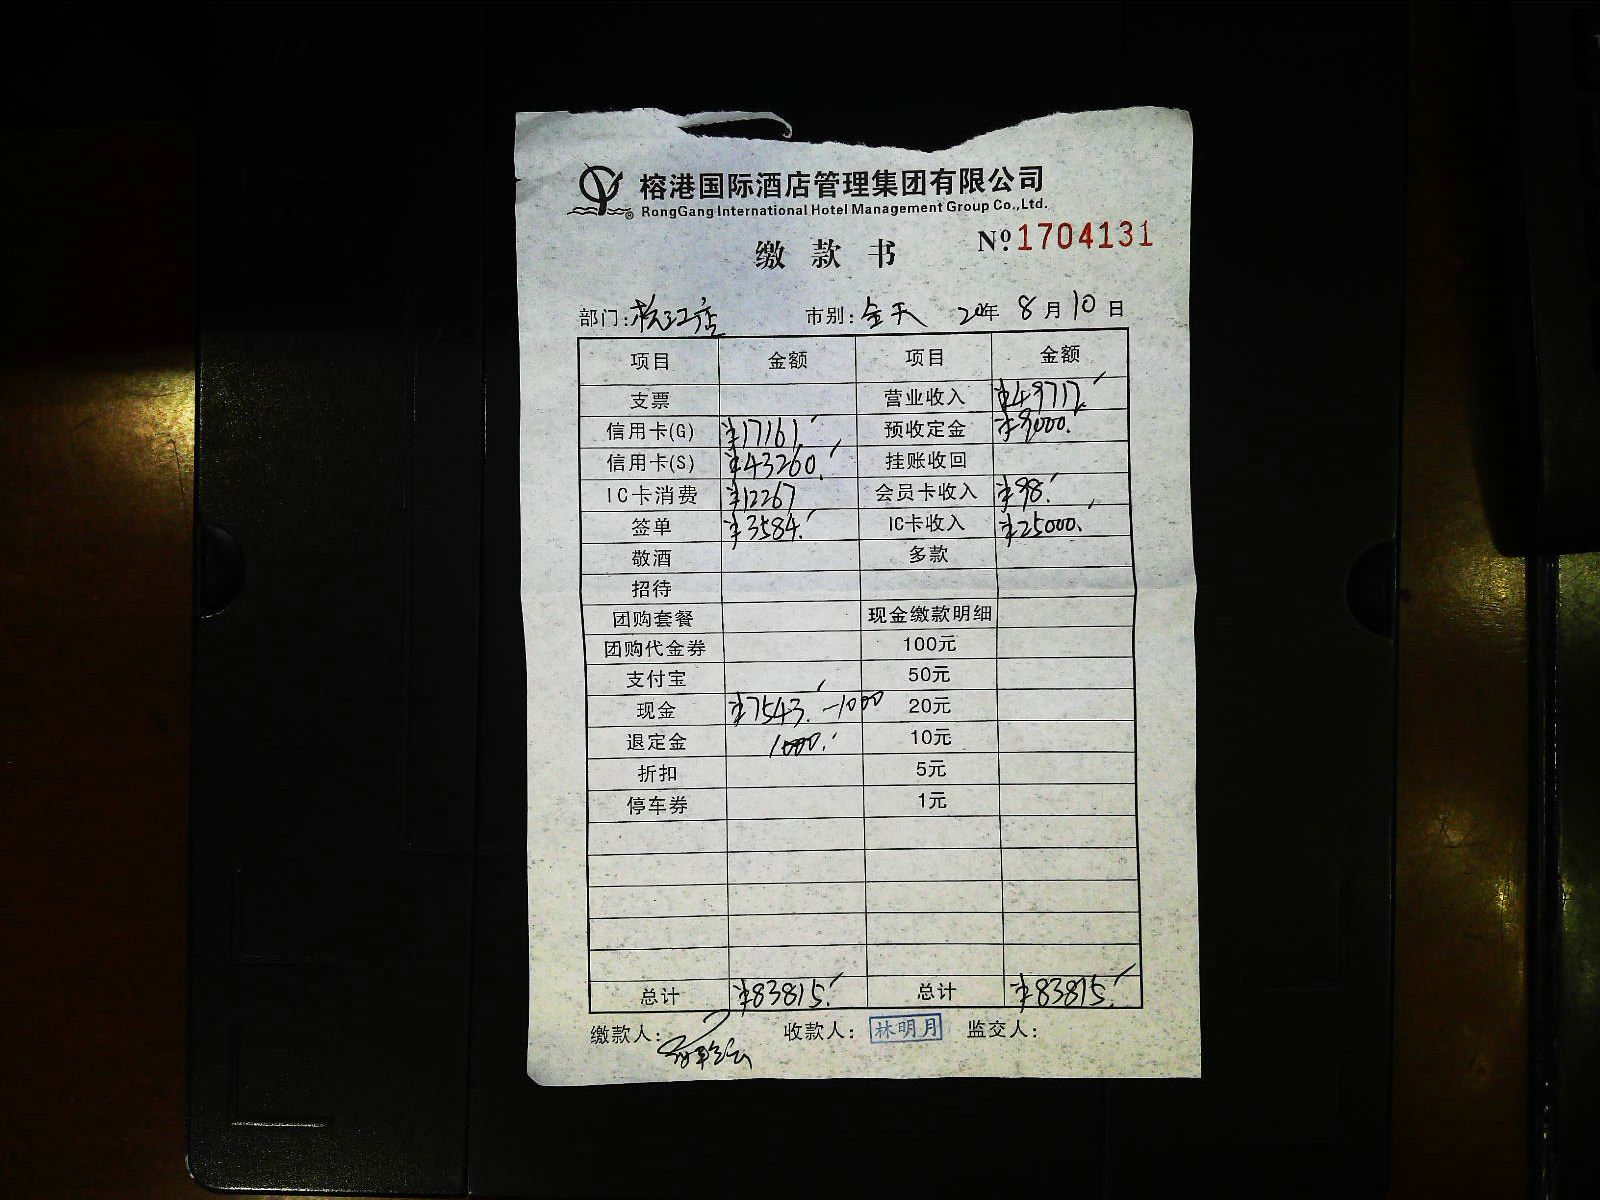 榕港国际酒店管理集团有限公司
RongGang International Hotel Management Group Co.,Ltd.
缴款书 Nº.1704131
部门:松江店 市别:全天 20年 8月10日
项目 金额 项目 金额
支票 营业收入 ¥49717.
信用卡(G) ¥17161. 预收定金 ¥9000.
信用卡(S) ¥43260. 挂账收回
IC卡消费 ¥12267 会员卡收入 ¥98.
签单 ¥3584. IC卡收入 ¥25000.
敬酒 多款
招待
团购套餐 现金缴款明细
团购代金券 100元
支付宝 50元
现金 ¥7543. -1000 20元
退定金 1000. 10元
折扣 5元
停车券 1元
总计 ¥83815. 总计 ¥83815.
缴款人: 收款人: 林明月 监交人: